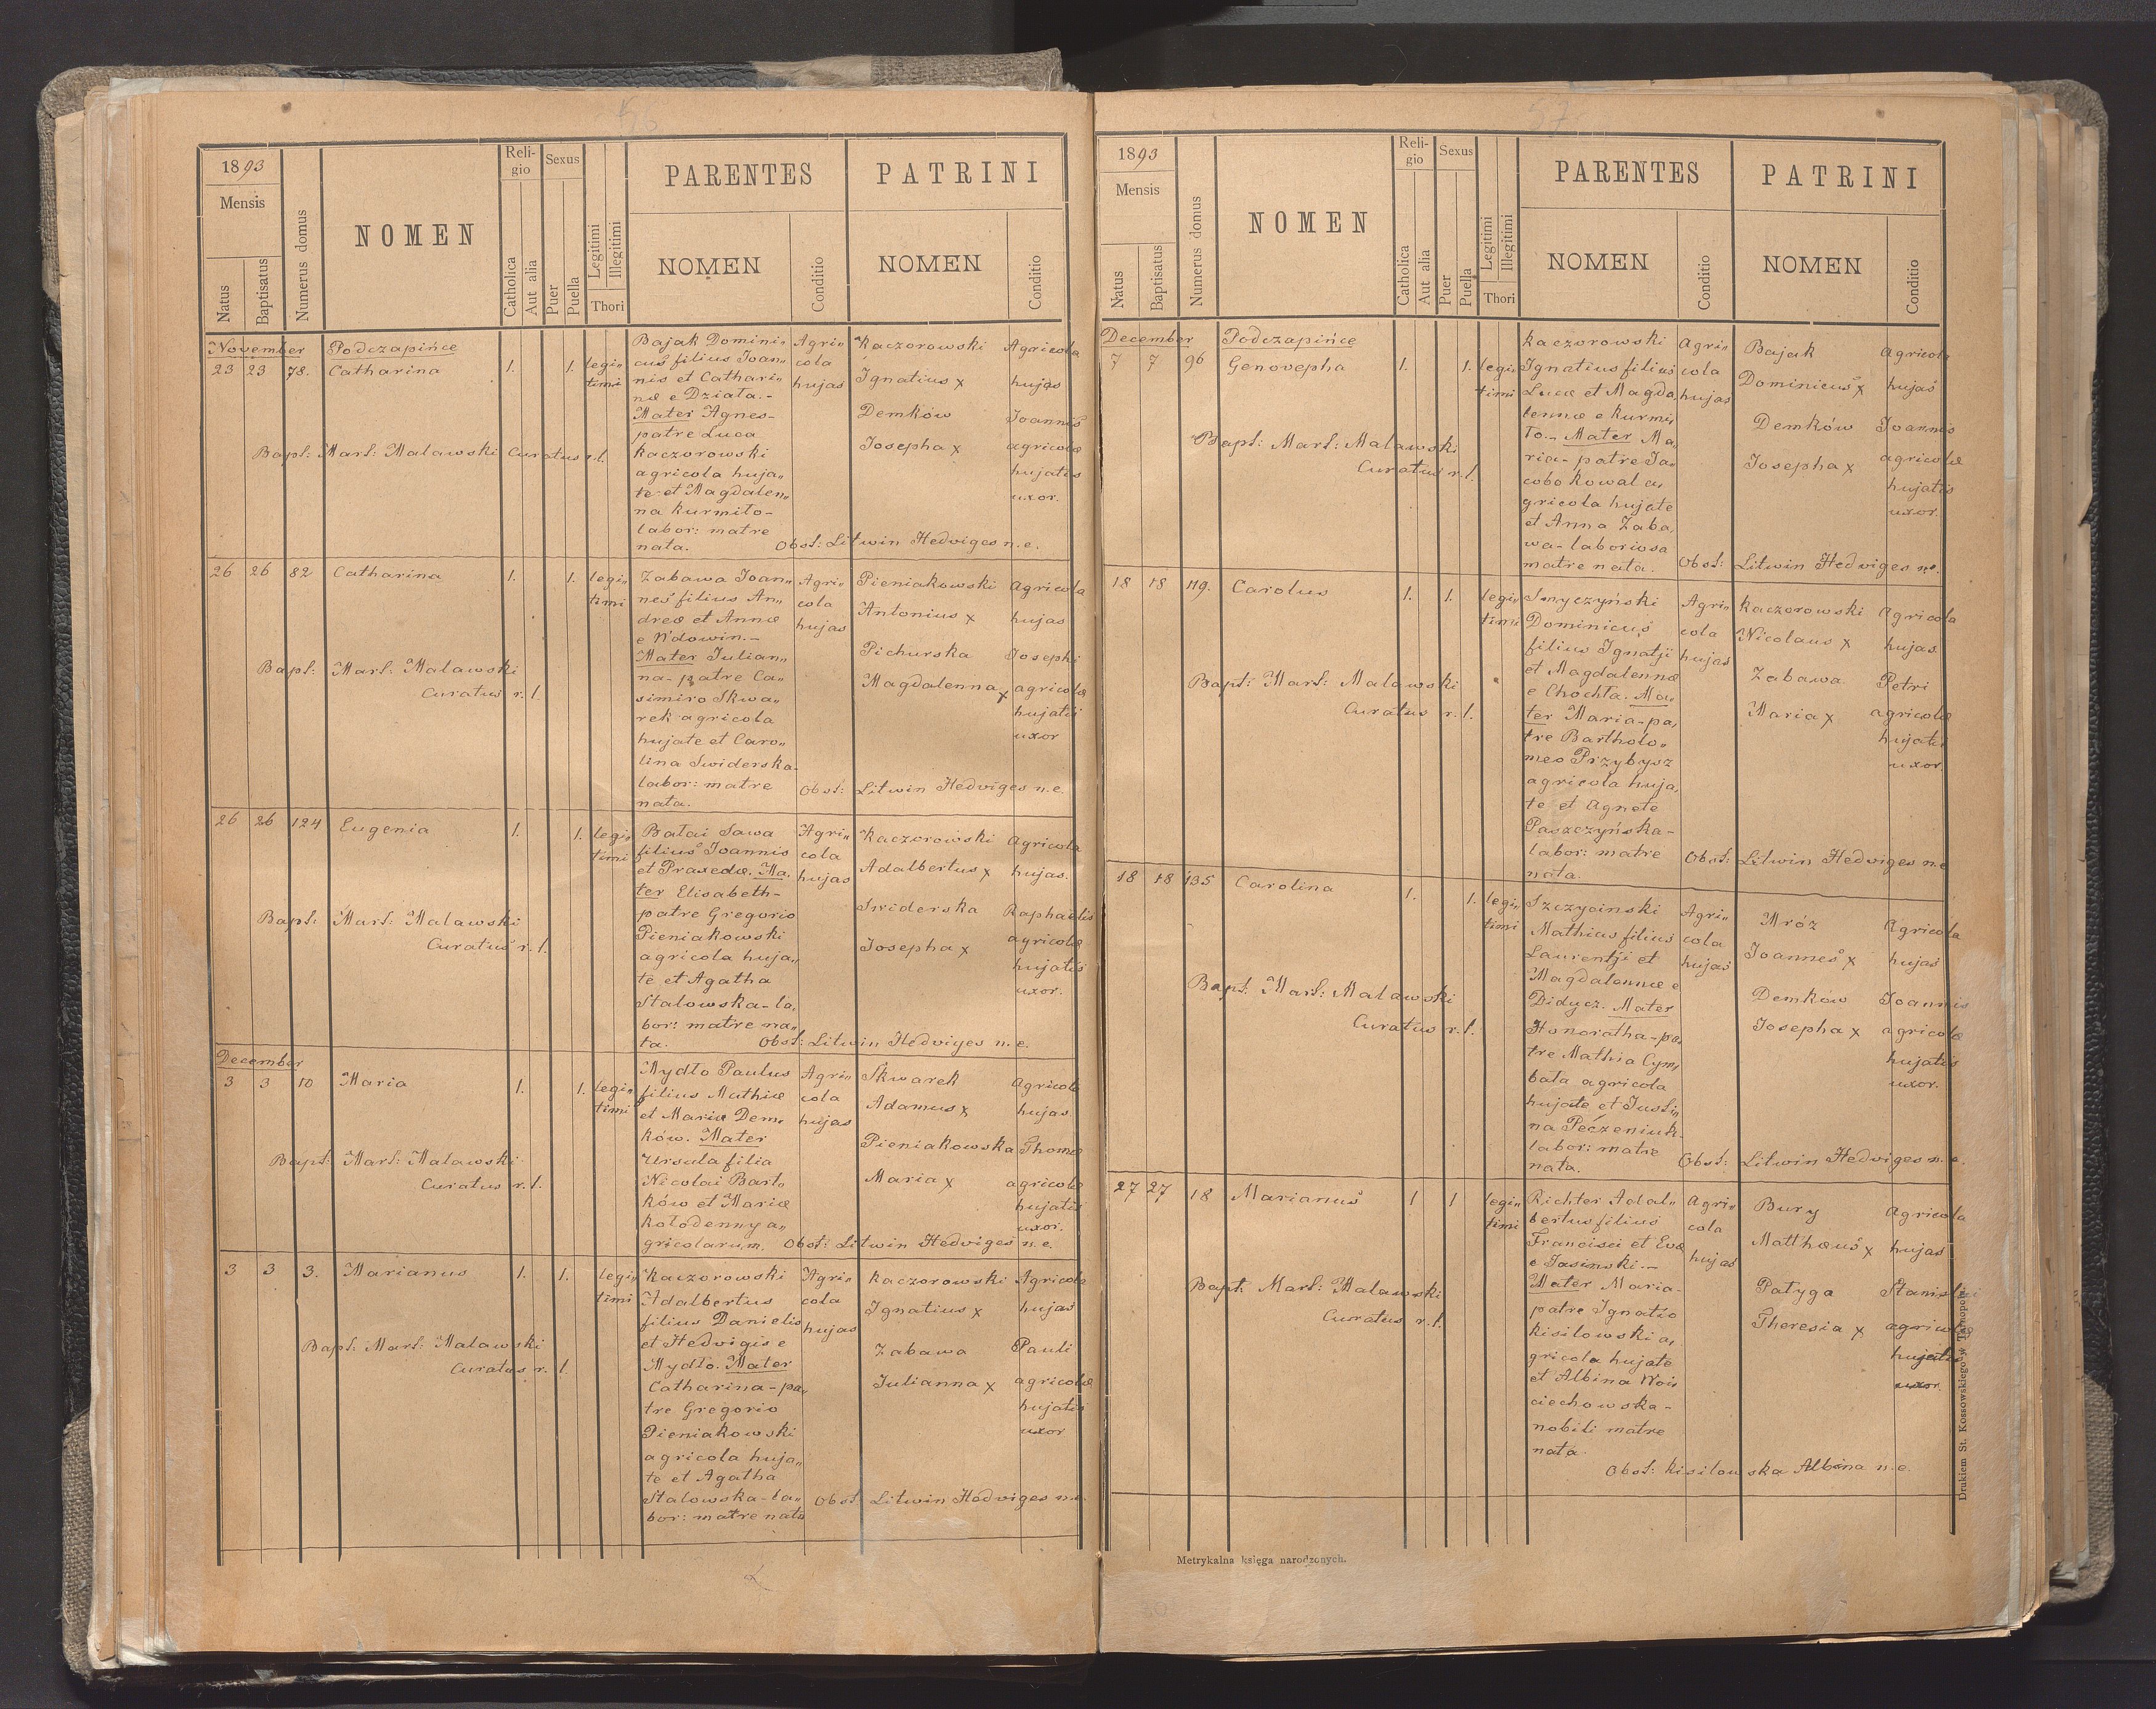 56
1893
Mensis
Natus
Baptisatus
Numerus domus
NOMEN
Reli-
gio
Catholica
Aut alia
Sexus
Puer
Puella
Legitimi
Illegitimi
Thori
PARENTES
NOMEN
Conditio
PATRINI
NOMEN
Conditio
November Podczapińce
23 23 78. Catharina 1. 1. legi„
timi
Bapt: Mart: Malawski Curatus r. l.
Bajak Domini„
cus filius Joan„
nis et Cathari„
næ e Działa.-
Mater Agnes-
patre Luca
Kaczorowski
agricola huja„
te et Magdalen„
na Kurmito-
labor: matre
nata.
Agri„
cola
hujas
Kaczorowski
Ignatius x
Demków
Josepha x
Agricola
hujas
Joannis
agricolæ
hujatis
uxor.
Obst: Litwin Hedviges n. e.
26 26 82 Catharina 1. 1. legi„
timi
Bapt: Mart: Malawski
Curatus r. l.
Zabawa Joan„
nes filius An„
dreæ et Annæ
e Wdowin.-
Mater Julian„
na-patre Ca„
simiro Skwa„
rek agricola
hujate et Caro„
lina Swiderska-
labor: matre
nata.
Agri„
cola
hujas
Pieniakowski
Antonius x
Pichurska
Magdalenna x
Agricola
hujas
Josephi
agricolæ
hujatis
uxor
Obst: Litwin Hedviges n. e.
26 26 124 Eugenia 1. 1. legi„
timi
Bapt: Mart: Malawski
Curatus r. l.
Bałai Sawa
filius Joannis
et Praxedæ. Ma„
ter Elisabeth-
patre Gregorio
Pieniakowski
agricola huja„
te et Agatha
Stalowska-la„
bor: matre na„
ta.
Agri„
cola
hujas
Kaczorowski
Adalbertus x
Swiderska
Josepha x
Agricola
hujas.
Raphaelis
agricolæ
hujatis
uxor.
Obst: Litwin Hedviges n. e.
December
3 3 10 Maria 1. 1. legi„
timi
Bapt: Mart: Malawski
Curatus r. l.
Mydło Paulus
filius Mathiæ
et Mariæ Dem„
ków. Mater
Ursula filia
Nicolai Bart„
ków et Mariæ
Kołodenny a„
gricolarum.
Agri„
cola
hujas
Skwarek
Adamus x
Pieniakowska
Maria x
Agricola
hujas.
Thomæ
agricolæ
hujatis
uxor.
Obst: Litwin Hedviges n. e.
3 3 3. Marianus 1. 1. legi„
timi
Bapt: Mart: Malawski
Curatus r. l.
Kaczorowski
Adalbertus
filius Danielis
et Hedvigis e
Mydło. Mater
Catharina-pa„
tre Gregorio
Pieniakowski
agricola huja„
te et Agatha
Stalowska-la„
bor: matre nata
Agri„
cola
hujas
Kaczorowski
Ignatius x
Zabawa
Julianna x
Agricola
hujas
Pauli
agricolæ
hujatis
uxor
Obst: Litwin Hedviges n. e.
57
1893
Mensis
Natus
Baptisatus
Numerus domus
NOMEN
Reli-
gio
Catholica
Aut alia
Sexus
Puer
Puella
Legitimi
Illegitimi
Thori
PARENTES
NOMEN
Conditio
PATRINI
NOMEN
Conditio
December Podczapińce
7 7 96 Genovepha 1. 1. legi„
timi
Bapt: Mart: Malawski
Curatus r. l.
Kaczorowski
Ignatius filius
Lucæ et Magda„
lennæ e Kurmi„
to.- Mater Ma„
ria-patre Ja„
cobo Kowal a„
gricola hujate
et Anna Zaba„
wa-laboriosa
matre nata.
Agri„
cola
hujas
Bajak
Dominicus x
Demków
Josepha x
Agricola
hujas
Joannis
agricolæ
hujatis
uxor.
Obst: Litwin Hedviges n. e.
18 18 119. Carolus 1. 1. legi„
timi
Bapt: Mart: Malawski
Curatus r. l.
Smyczyński
Dominicus
filius Ignatji
et Magdalennæ
e Chochła. Ma„
ter Maria-pa„
tre Bartholo„
meo Przybysz
agricola huja„
te et Agnete
Paszczyńska-
labor: matre
nata.
Agri„
cola
hujas
Kaczorowski
Nicolaus x
Zabawa
Maria x
Agricola
hujas.
Petri
agricolæ
hujatis
uxor.
Obst: Litwin Hedviges n. e
18 18 135 Carolina 1. 1. legi„
timi
Bapt: Mart: Malawski
Curatus r. l.
Szczycinski
Mathias filius
Laurentji et
Magdalennæ e
Didycz. Mater
Honoratha-pa„
tre Mathia Cym„
bała agricola
hujate et Justi„
na Peczeniuk-
labor: matre
nata.
Agri„
cola
hujas
Mróz
Joannes x
Demków
Josepha x
Agricola
hujas
Joannis
agricolæ
hujatis
uxor.
Obst: Litwin Hedviges n. e.
27 27 18 Marianus 1 1 legi„
timi
Bapt: Mart: Malawski
Curatus r. l.
Richter Adal„
bertus filius
Francisci et Evæ
e Jasinski.-
Mater Maria-
patre Ignatio
Kisilowski a„
gricola hujate
et Albina Woi„
ciechowska-
nobili matre
nata.
Agri„
cola
hujas
Bury
Matthæus x
Patyga
Theresia x
Agricola
hujas
Stanislai
agricolæ
hujatis
uxor.
Obst: Kisilowska Albina n. e.
Metrykalna księga narodzonych.
Drukiem St. Kossowskiego w Tarnopolu.